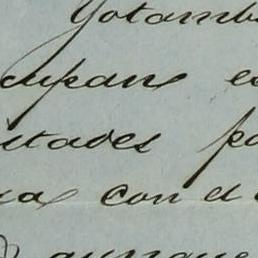 Yotamb
cupans es
itades po
ra con el
aunque